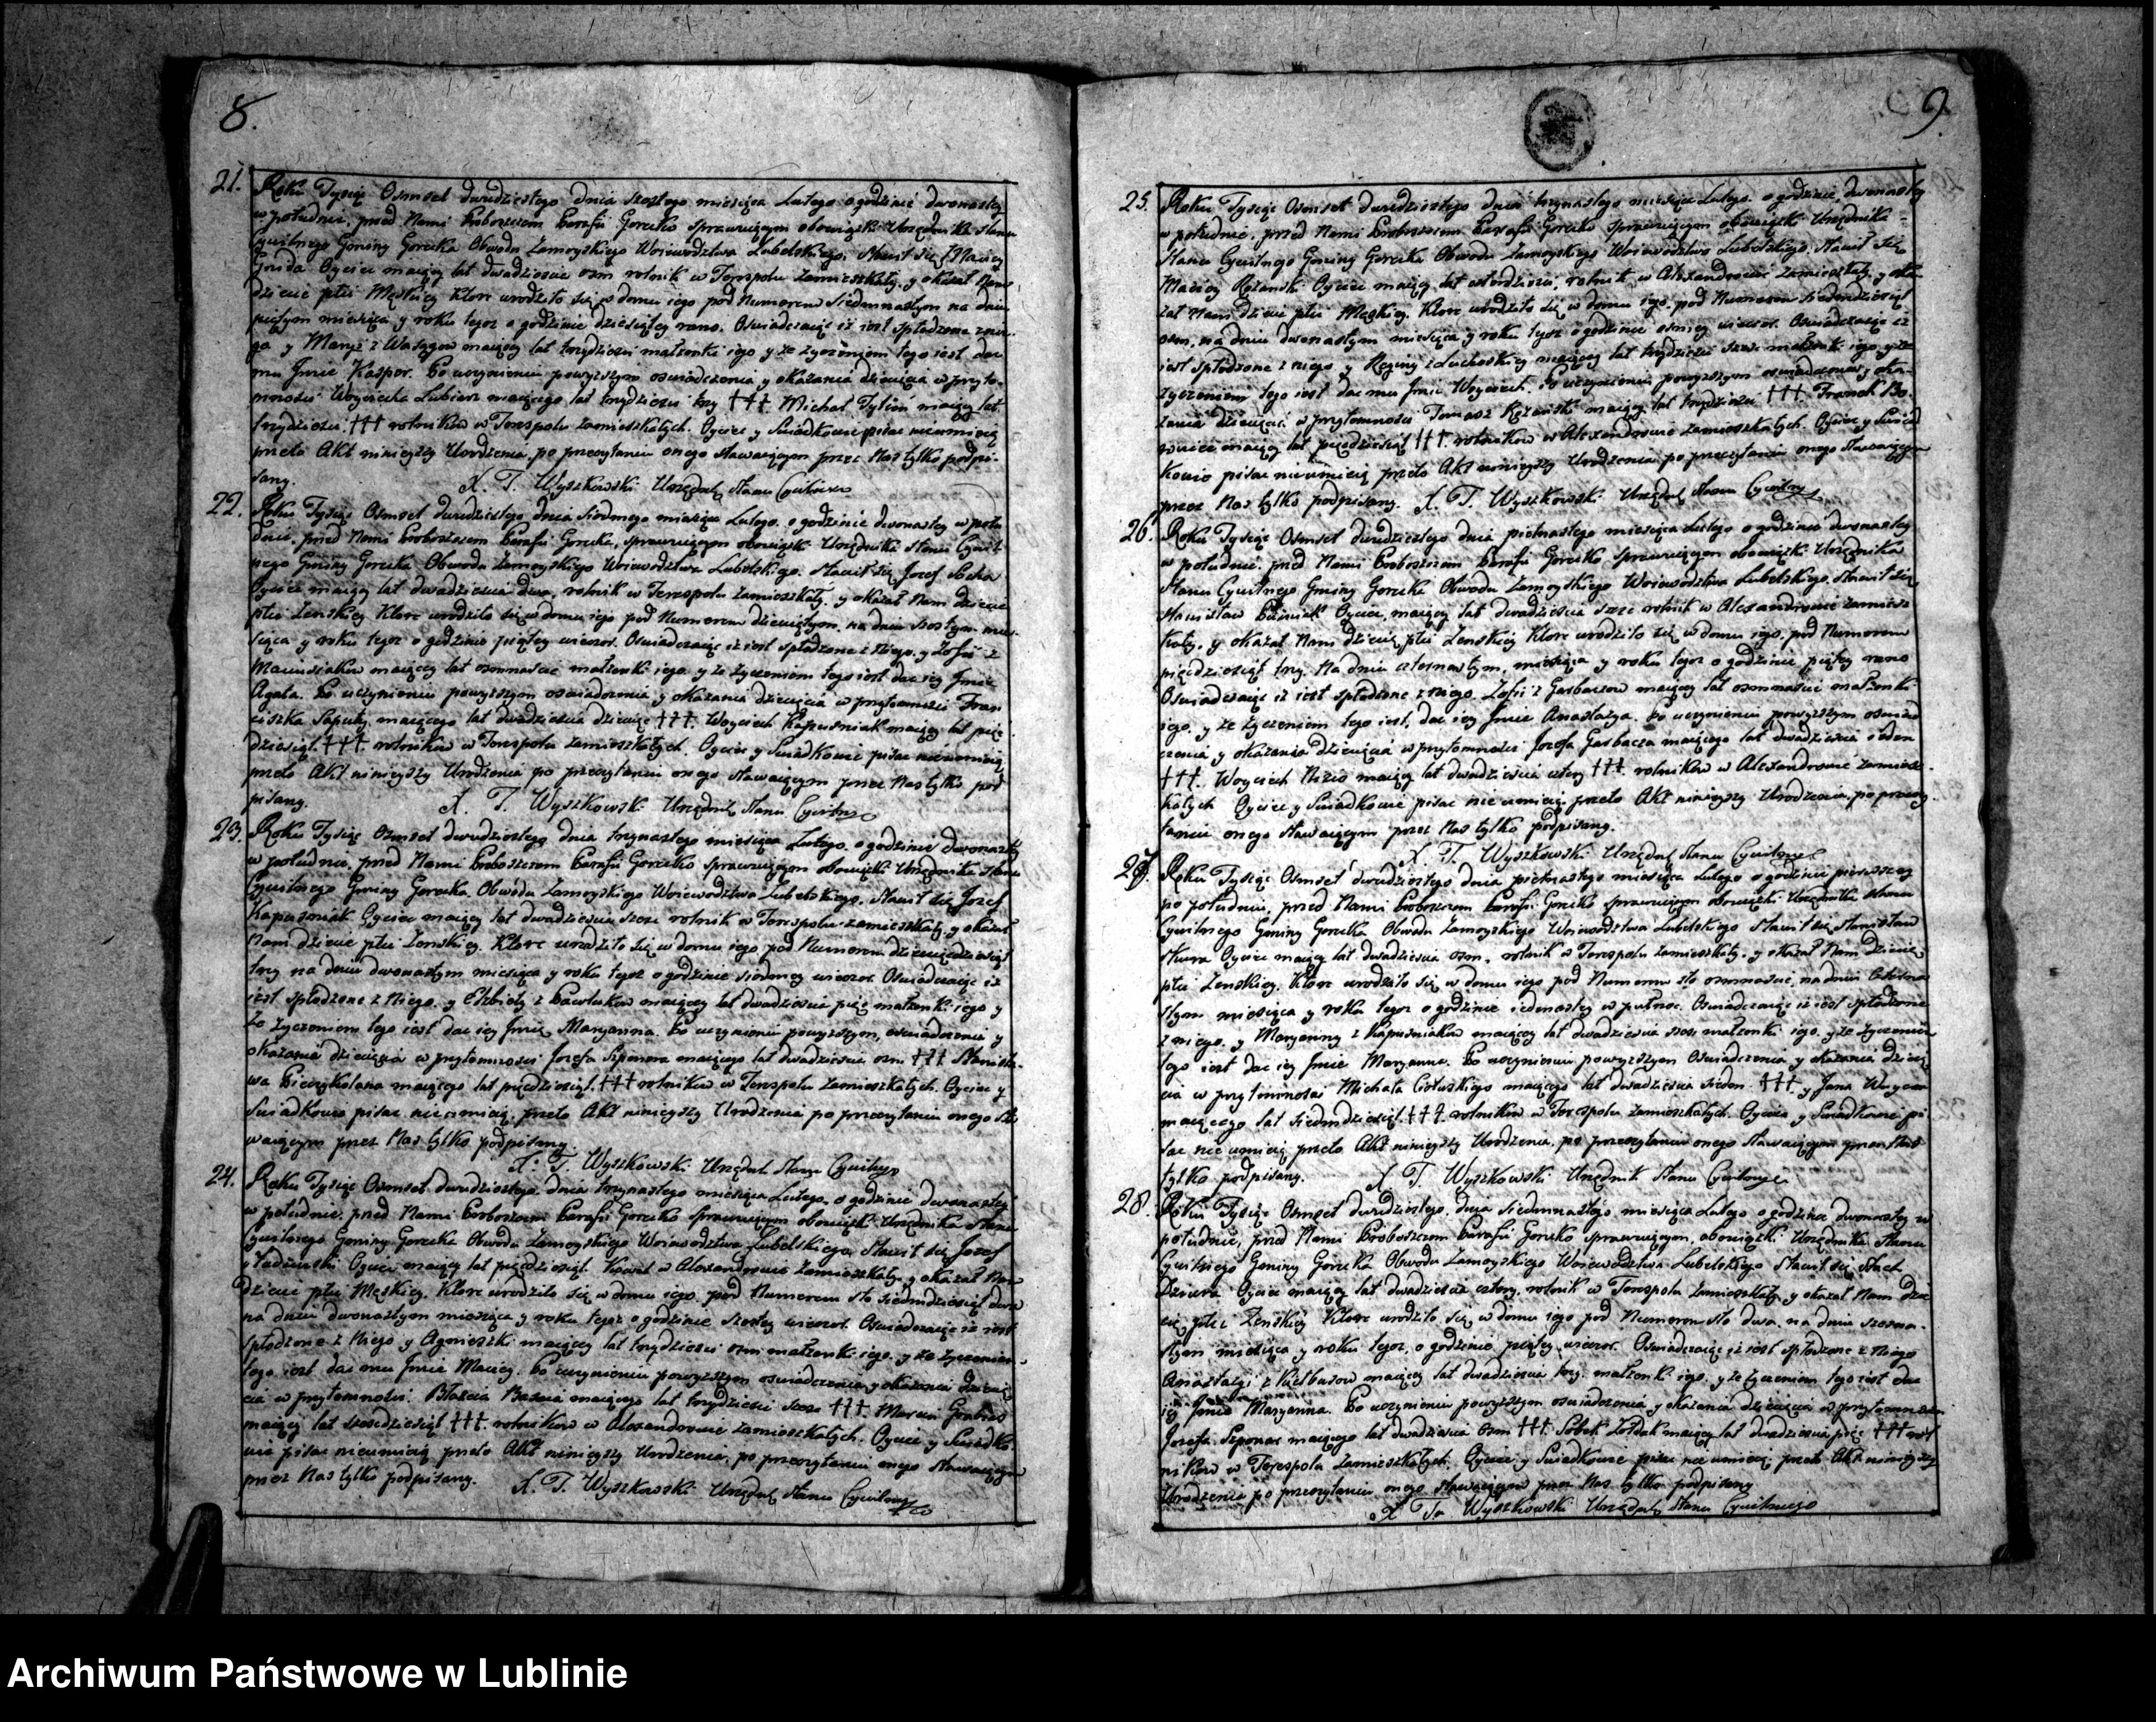 8.
21. Roku Tysiąc Osmset dwudziestego dnia szostego miesiąca Lutego o godzinie dwonastey
w południe, przed Nami Proboszczem Parafii Gorecko sprawuiącym obowiązki Urzędnika Stanu
Cywilnego Gminy Gorecka Obwodu Zamoyskiego Woiewodztwa Lubelskiego. Stawił się Maciey
Oyciec maiący lat dwadziescia osm rolnik w Terespolu zamieszkały, y okazał Nam
dziecie płci Męskiey Ktore urodziło się w domu iego pod Numerem Siedmnastym na dniu
piątym miesiąca y roku tegoz o godzinie dziesiątey rano. Oswiadczaiąc iz iest spłodzone z nie-
go y Maryi z maiącey lat trzydziesci małzonki iego y ze zyczeniem tego iest dac
mu Jmie Kasper. Po uczynieniu powyzszym oswiadczenia y okazania dziecięcia w przyto-
mnosci Woyciecha maiącego lat trzydziesci trzy ††† Michał maiący lat
trzydziesci ††† rolnikow w Terespolu zamieszkałych. Oyciec y Swiadkowie pisac nieumieią
przeto Akt ninieyszy Urodzenia po przeczytaniu onego stawaiącym przez Nas tylko podpi-
sany. X. T. Wyszkowski Urzędnik Stanu Cywilnego
22. Roku Tysiąc Osmset dwudziestego dnia siodmego miesiąca Lutego o godzinie dwonastey w połu
dnie, przed Nami Proboszczem Parafii Gorecka, sprawuiącym obowiązki Urzędnika Stanu Cywil-
nego Gminy Gorecka Obwodu Zamoyskiego Woiewodztwa Lubelskiego. Stawił się Jozef Socha
Oyciec maiący lat dwadziescia dwa, rolnik w Terespolu zamieszkały, y okazał Nam dziecie
płci Zenskiey Ktore urodziło się w domu iego pod Numerem dziewiątym, na dniu szostym mie-
siąca y roku tegoz o godzinie piątey wieczor. Oswiadczaiąc iz iest spłodzone z Niego y Zofii z
maiącey lat osmnascie małzonki iego y ze zyczeniem tego iest dac iey Jmie
Agata. Po uczynieniu powyzszym oswiadczenia y okazania dziecięcia w przytomnosci Fran
ciszka Saputy maiącego lat dwadziescia dziewięc ††† Woyciech Kapusniak maiący lat pię
dziesiąt ††† rolnikow w Terespolu zamieszkałych. Oyciec y Swiadkowie pisac nieumieią
przeto Akt ninieyszy Urodzenia po przeczytaniu onego stawaiącym przez Nas tylko pod
pisany. X. T. Wyszkowski Urzędnik Stanu Cywilnego
23. Roku Tysiąc Osmset dwudziestego dnia trzynastego miesiąca Lutego o godzinie dwonastey
w południe, przed Nami Proboszczem Parafii Gorecko sprawuiącym obowiązki Urzędnika Stanu
Cywilnego Gminy Gorecka Obwodu Zamoyskiego Woiewodztwa Lubelskiego. Stawił się Jozef
Kapusniak Oyciec maiący lat dwadziescia szesc rolnik w Terespolu zamieszkały y okazał
Nam dziecie płci Zenskiey. Ktore urodziło się w domu iego pod Numerem dziewięcdziesiąt
trzy na dniu dwonastym miesiąca y roku tegoz o godzinie siodmey wieczor. Oswiadczaiąc iz
iest spłodzone z Niego y Elzbiety z Pawlukow maiącey lat dwadziescia pięc małzonki iego y
Ze zyczeniem tego iest dac iey Jmie Maryanna. Po uczynieniu powyzszym, oswiadczenia y
okazania dziecięcia w przytomnosci Jozefa Szponara maiącego lat dwadziescia osm ††† Stanisła-
wa maiącego lat pięcdziesiąt ††† rolnikow w Terespolu zamieszkałych. Oyciec y
Swiadkowie pisac nieumieią, przeto Akt ninieyszy Urodzenia po przeczytaniu onego sta
waiącym przez Nas tylko podpisany.
X. T. Wyszkowski Urzędnik Stanu Cywilnego
24. Roku Tysiąc Osmset dwudziestego dnia trzynastego miesiąca Lutego, o godzinie dwonastey
w południe, przed Nami Proboszczem Parafii Gorecko sprawuiącym obowiązki Urzędnika Stanu
Cywilnego Gminy Gorecka Obwodu Zamoyskiego Woiewodztwa Lubelskiego Stawił się Jozef
Oyciec maiący lat pięcdziesiąt Kowal w Alexandrowie zamieszkały y okazał Nam
Dziecie płci Męskiey. Ktore urodziło się w domu iego pod Numerem sto siedmdziesiąt dwa
na dniu dwonastym miesiąca y roku tegoz o godzinie szostey wieczor. Oswiadczaiąc iz iest
spłodzone z Niego y Agnieszki maiącey lat trzydziesci osm małzonki iego y ze zyczeniem
tego iest dac mu Jmie Maciey. Po uczynieniu powyzszym oswiadczenia y okazania dziecię
cia w przytomnosci Błazeia maiącego lat trzydziesci szesc ††† Marcin
maiący lat szescdziesiąt ††† rolnikow w Alexandrowie zamieszkałych. Oyciec y Swiadko-
wie pisac nieumieią przeto Akt ninieyszy Urodzenia po przeczytaniu onego Stawaiącym
przez Nas tylko podpisany. X. T. Wyszkowski Urzędnik Stanu Cywilnego
9.
25. Roku Tysiąc Osmset dwudziestego dnia trzynastego miesiąca Lutego o godzinie dwonastey
w południe, przed Nami Proboszczem Parafii Gorecko sprawuiącym obowiązki Urzędnika
Stanu Cywilnego Gminy Gorecka Obwodu Zamoyskiego Woiewodztwa Lubelskiego. Stawił się
Maciey Oyciec maiący lat czterdziesci, rolnik w Alexandrowie zamieszkały, y oka
zał Nam dziecie płci Męskiey. Ktore urodziło się w domu iego pod Numerem siedmdziesiąt
osm, na dniu dwonastym miesiąca y roku tegoz o godzinie osmey wieczor. Oswiadczaiąc iz
iest spłodzone z niego y Reginy z maiącey lat trzydziesci szesc małzonki iego y ze
zyczeniem tego iest dac mu Jmie Woyciech. Po uczynieniu powyzszym oswiadczenia y oka-
zania dziecięcia w przytomnosci Tomasz maiący lat trzydziesci ††† Franek
maiący lat pięcdziesiąt ††† rolnikow w Alexandrowie zamieszkałych. Oyciec y Swiad
kowie pisac nieumieią przeto Akt ninieyszy Urodzenia po przeczytaniu onego Stawaiącym
przez Nas tylko podpisany. X. T. Wyszkowski Urzędnik Stanu Cywilnego
26. Roku Tysiąc Osmset dwudziestego dnia pietnastego miesiąca Lutego o godzinie dwonastey
w południe, przed Nami Proboszczem Parafii Gorecko sprawuiącym obowiązki Urzędnika
Stanu Cywilnego Gminy Gorecka Obwodu Zamoyskiego Woiewodztwa Lubelskiego. Stawił się
Stanisław Oyciec, maiący lat dwadziescia szesc rolnik w Alexandrowie zamiesz
kały, y okazał Nam dziecie płci Zenskiey Ktore urodziło się w domu iego pod Numerem
pięcdziesiąt trzy. Na dniu czternastym, miesiąca y roku tegoz o godzinie piątey rano
Oswiadczaiąc iz iest spłodzone z niego Zofii z Garbaczow maiącey lat osmnascie małzonki
iego, y ze zyczeniem tego iest, dac iey Jmie Anastazya. Po uczynieniu powyzszym oswiad
czenia y okazania dziecięcia w przytomnosci Jozefa Garbacza maiącego lat dwadziescia siedem
†††. Woyciech maiący lat dwadziescia cztery ††† rolnikow w Alexandrowie zamiesz-
kałych Oyciec y Swiadkowie pisac nie umieią przeto Akt ninieyszy Urodzenia, po przeczy-
taniu onego stawaiącym przez Nas tylko podpisany.
X. T. Wyszkowski Urzędnik Stanu Cywilnego
27. Roku Tysiąc Osmset dwudziestego dnia pietnastego miesiąca Lutego o godzinie pierwszey
po południu, przed Nami Proboszczem Parafii Gorecko sprawuiącym obowiązki Urzędnika Stanu
Cywilnego Gminy Gorecka Obwodu Zamoyskiego Woiewodztwa Lubelskiego Stawił się Stanisław
Oyciec maiący lat dwadziescia osm, rolnik w Terespolu zamieszkały, y okazał Nam Dziecie
płci Zenskiey, Ktore urodziło się w domu iego pod Numerem sto osmnascie, na dniu czterna
stym miesiąca y roku tegoz o godzinie iedenastey w pułnoc. Oswiadczaiąc iz iest spłodzone
z niego y Maryanny z Kapusniakow maiącey lat dwadziescia szesc małzonki iego, y ze zyczeniem
tego iest dac iey Jmie Maryanna. Po uczynieniu powyzszym Oswiadczenia y okazania dziecię
cia w przytomnosci Michała maiącego lat dwadziescia siedm ††† y Jana
maiącego lat siedmdziesiąt ††† rolnikow w Terespolu zamieszkałych. Oyciec y Swiadkowie pi
sac nie umieią przeto Akt ninieyszy Urodzenia, po przeczytaniu onego stawaiącym przez Nas
tylko podpisany. X. T. Wyszkowski Urzędnik Stanu Cywilnego
28. Roku Tysiąc Osmset dwudziestego, dnia siedmnastego miesiąca Lutego o godzinie dwonastey w
południe, przed Nami Proboszczem Parafii Gorecko sprawuiącym, obowiązki Urzędnika Stanu
Cywilnego Gminy Gorecka Obwodu Zamoyskiego Woiewodztwa Lubelskiego Stawił się Stach
Oyciec maiący lat dwadziescia cztery, rolnik w Terespolu zamieszkały y okazał Nam dzie
cię płci Zenskiey Ktore urodziło się w domu iego pod Numerem sto dwa, na dniu szesna-
stym miesiąca y roku tegoz o godzinie piątey wieczor. Oswiadczaiąc iz iest spłodzone z Niego
Anastazyi z Kiełbasow maiącey lat dwadziescia trzy małzonki iego, y ze zyczeniem tego iest dac
iey Jmie Maryanna. Po uczynieniu powyzszym oswiadczenia y okazania dziecięcia w przytomnosci
Jozefa Szponar maiącego lat dwadziescia osm ††† Sobek maiący lat dwadziescia pięc ††† rol
nikow w Terespolu zamieszkałych. Oyciec y Swiadkowie pisac nie umieią przeto Akt ninieyszy
Urodzenia po przeczytaniu onego Stawaiącym przez Nas tylko podpisany
X. T. Wyszkowski Urzędnik Stanu Cywilnego
Archiwum Państwowe w Lublinie